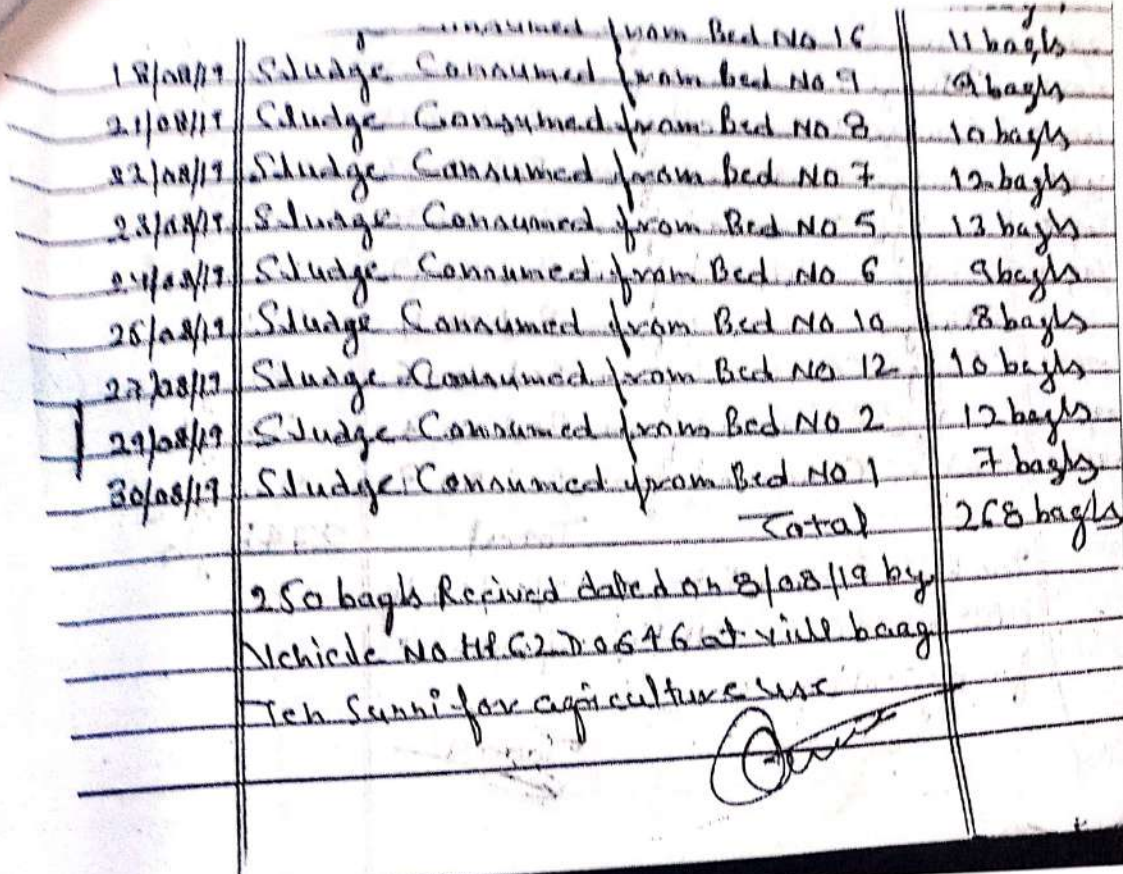 from Bed No 16 11 bagls
18/08/19 Sludge Consumed from Bed No 9 9 bagls
21/08/19 Sludge Consumed from Bed No 8 10 bagls
22/08/19 Sludge Consumed from Bed No 7 12 bagls
23/08/19 Sludge Consumed from Bed No 5 13 bagls
24/08/19 Sludge Consumed from Bed No 6 9 bagls
26/08/19 Sludge Consumed from Bed No 10 8 bagls
27/08/19 Sludge Consumed from Bed No 12 10 bagls
29/08/19 Sludge Consumed from Bed No 2 12 bagls
30/08/19 Sludge Consumed from Bed No 1 7 bagls
Total 268 bagls
250 bagls Recived dated on 8/08/19 by
Vehicle No HP62D0646 at vill baag
Teh Sunni for agriculture use